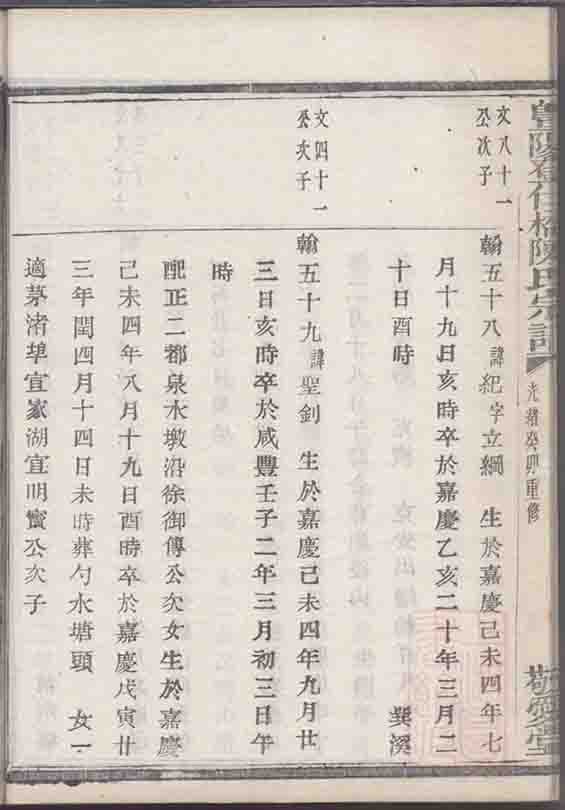 陳氏宗譜
光緒癸卯重修
敬愛堂
文八十一
公次子
翰五十八諱紀字立綱 生於嘉慶己未四年七
月十九日亥時卒於嘉慶乙亥二十年三月二
十日酉時 巽溪
文四十一
公次子
翰五十九諱聖釗 生於嘉慶己未四年九月廿
三日亥時卒於咸豐壬子二年三月初三日午
時
配正二都泉水墩沿徐御傳公次女生於嘉慶
己未四年八月十九日酉時卒於嘉慶戊寅廿
三年閏四月十四日未時葬勺水塘頭 女一
適茅渚埠宜家湖宜明賓公次子